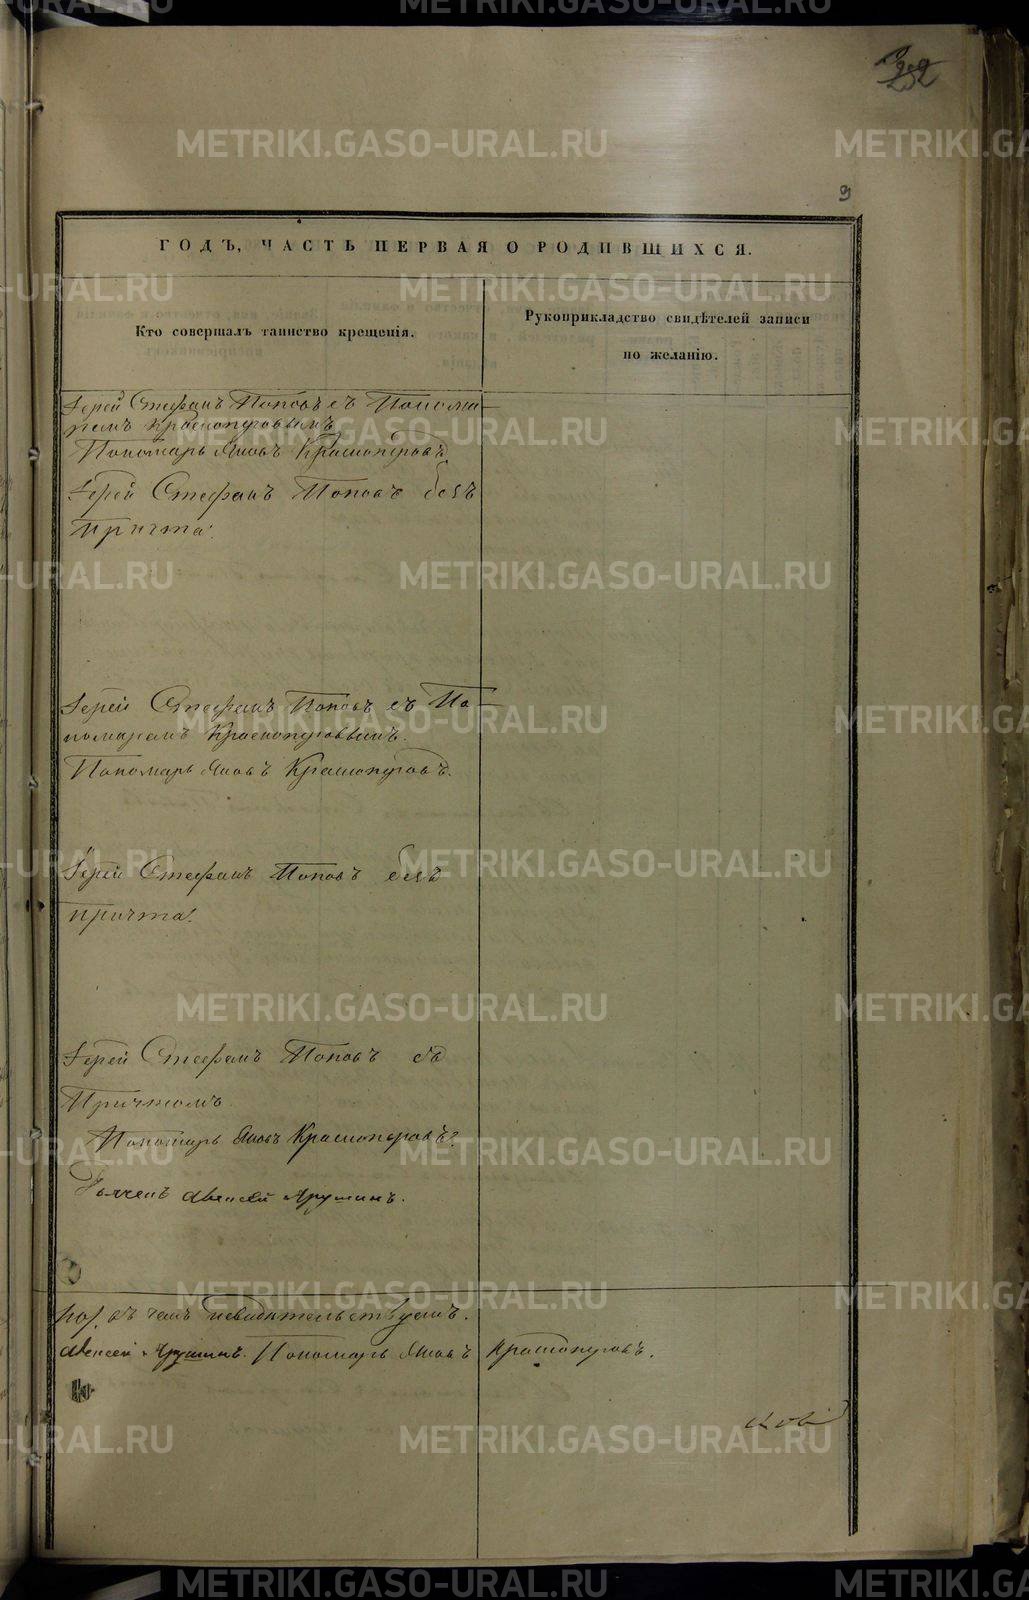 9
ГОДЪ, ЧАСТЬ ПЕРВАЯ О РОДИВШИХСЯ.
Кто совершалъ таинство крещенія.
Рукоприкладство свидѣтелей записи
по желанію.
Іерей Стефанъ Поповъ съ Понома–
ремъ Красноперовымъ
Пономарь Яковъ Красноперовъ
Іерей Стефанъ Поповъ безъ
причта.
Іерей Стефанъ Поповъ съ По–
номаремъ Красноперовымъ.
Пономарь Яковъ Красноперовъ.
Іерей Стефанъ Поповъ безъ
причта.
Іерей Стефанъ Поповъ съ
Причтомъ
Пономарь Яковъ Красноперовъ.
Дьячекъ Алексей Ярушинъ.
въ чемъ и свидѣтельствуемъ.
Алексей Ярушинъ. Пономарь Яковъ Красноперовъ.
METRIKI.GASO-URAL.RU